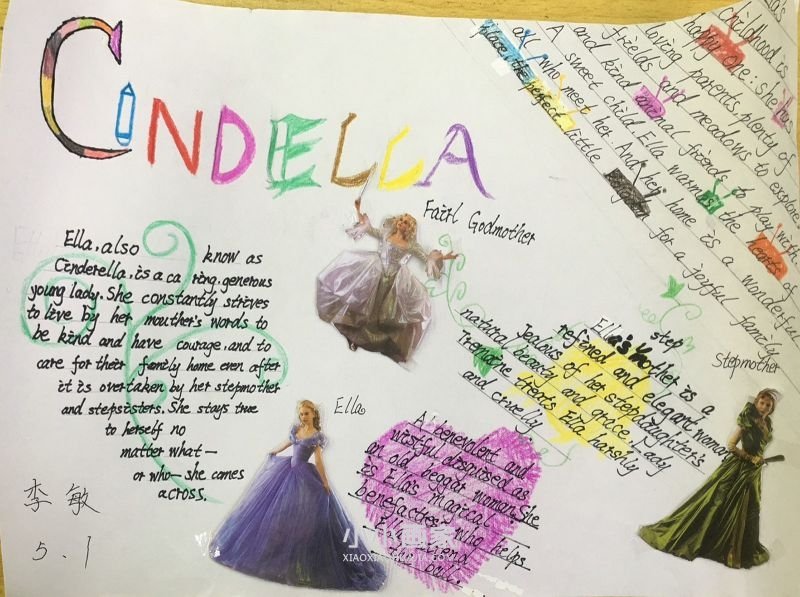 CINDELLA
childhood is a
happy one: she has
loving parents, plenty of
fields and meadows to explore
and kind animal friends to play with
A sweet child, Ella warms the hearts of
all who meet her. And her home is a wonderful
place, the perfect little for a joyful family
Fairl Godmother
Ella, also know as
Cinderella, is a ca ring, generous
young lady. She constantly strives
to live by her mouther's words to
be kind and have courage, and to
care for their family home even after
it is overtaken by her stepmother
and stepsisters. She stays true
to herself no
matter what—
or who—she comes
across.
step
Ella's mother is a
refined and elegant woman
Jealous of her stepdaughter's
natural beauty and grace. Lady
Tremaine treats Ella harshly
and cruelly
Stepmother
Ella
A benevolent and
wistful disguised as
an old beggar woman. She
is Ella's magical
benefactress who helps
Ella attend
ball.
李敏
5.1
小小画家
XIAOXIAOHUAJIA.COM